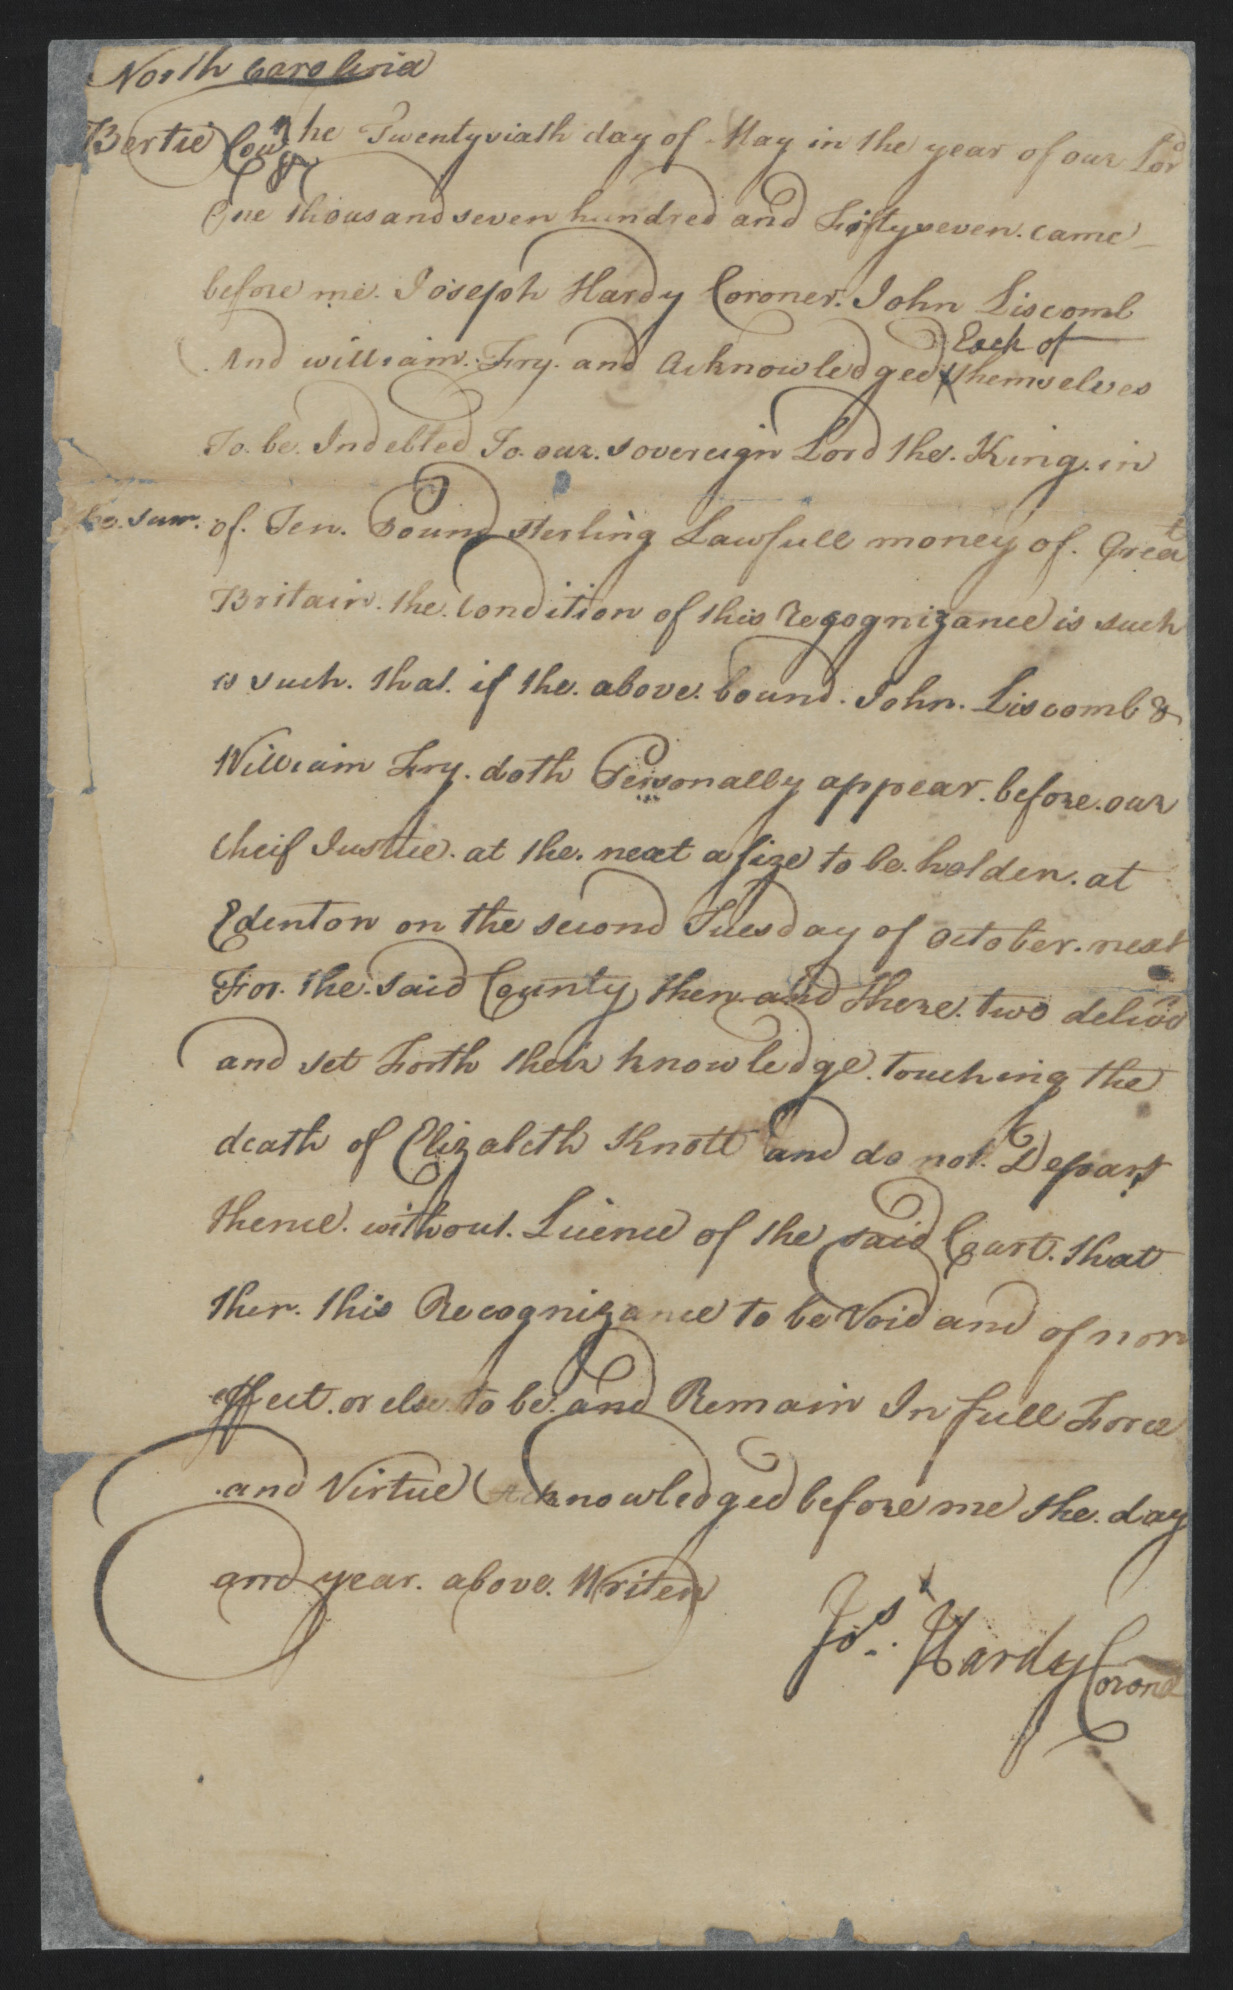 North Carolina
Bertie County The Twentysixth day of May in the year of our Lord
One thousand seven hundred and Fiftyseven. came
before me. Joseph Hardy Coroner. John Liscomb
Each of
And william. Fry. and Acknowledged themselves
To. be. Indebted To. our. sovereign Lord the. King. in
the. sum. of. Ten. Pound sterling Lawfull money of. Great
Britain. the. Condition of this Recognizance is such
is such. that. if the. above. bound. John. Liscomb &
William Fry. doth Personally appear. before. our
Cheif Justice. at the. next assize to be. holden. at
Edenton on the second Tuesday of october. next
For. the. said County then and there. two deliver
and set Forth their knowledge. touching the
death of Elizabeth Knott and do not. Depart
thence. without. Licence of the said Court. that
then. this Recognizance to be Void and of non
effect. or else. to be. and Remain In full Force
and Virtue Acknowledged before me the. day
and year. above. Writen
Jos. Hardy Coroner